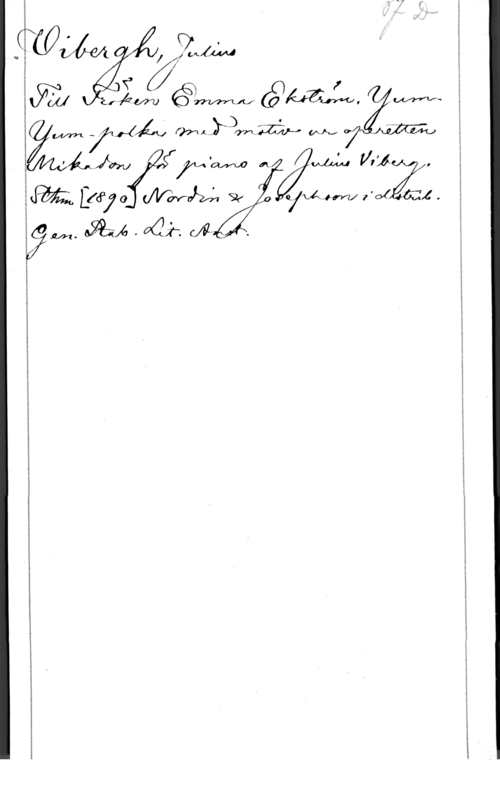 Vibergh, Julius
Till Fröken Emma Ekström. Yum-
Yum-polka med motiv ur operetten
Mikadon för piano af Julius Viberg.
Sthm [1890] Nordin & Josephson i distrib.
Gen. Stab. Lit. Anst.